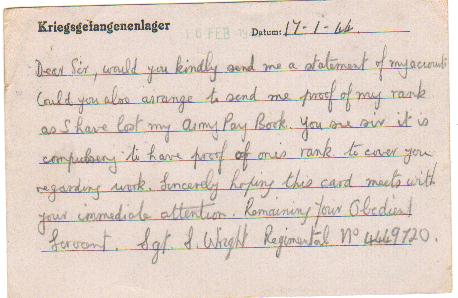 Kriegsgefangenenlager
FEB
Datum: 17-1-44.
Dear Sir, would you kindly send me a statement of my account
Could you also arrange to send me proof of my rank
as I have lost my Army Pay Book. You see sir it is
compulsory to have proof of one's rank to cover you
regarding work. Sincerely hoping this card meets with
your immediate attention. Remaining Your Obedient
Servant. Sgt. S. Wright Regimental No 4449720.